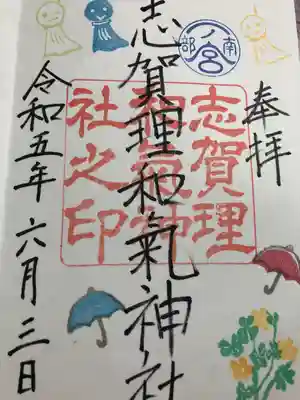 奉拝
南部
一ノ宮
志賀理和氣神社
志賀理
和氣神
社之印
令和五年六月三日